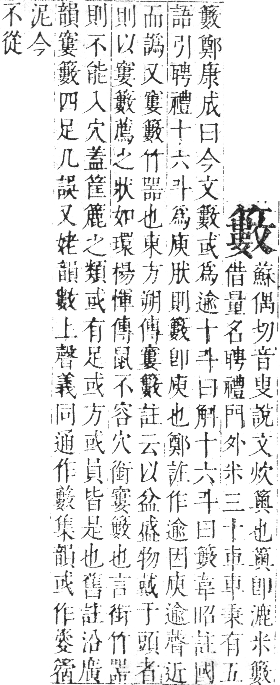 籔蘇偶切音叟說文炊䉛也䉛卽漉米籔
借量名聘禮門外米三十車車秉有五
籔鄭康成曰今文籔或爲逾十斗曰斛十六斗曰籔韋昭註國
語引聘禮十六斗爲庾狀則籔卽庾也鄭註作逾因庾逾聲近
而譌又窶籔竹器也東方朔傳窶籔註云以盆盛物戴于頭者
則以窶籔薦之狀如環楊惲傳鼠不容穴銜窶籔也言銜竹器
則不能入穴蓋筐簏之類或有足或方或員皆是也舊註沿廣
韻窶籔四足几誤又姥韻數上聲義同通作籔集韻或作
泥今
不從